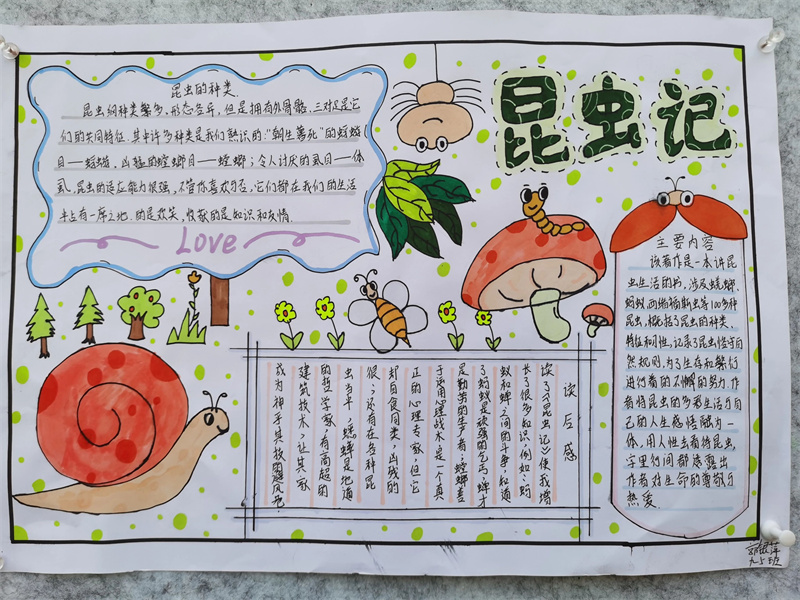 昆虫记
昆虫的种类
昆虫纲种类繁多、形态各异，但是拥有外骨骼、三对足是它
们的共同特征。其中许多种类是我们熟识的："朝生暮死"的蜉蝣
目—蜉蝣，凶猛的螳螂目—螳螂；令人讨厌的虱目—体
虱，昆虫的适应能力很强，不管你喜欢与否，它们都在我们的生活
中占有一席之地。的是欢笑，收获的是知识和友情.
Love
主要内容
该著作是一本讲昆
虫生活的书，涉及蜣螂、
蚂蚁、西绪福斯虫等100多种
昆虫，概括了昆虫的种类、
特征和习性，记录了昆虫恪守自
然规则，为了生存和繁衍
进行着的不懈的努力，作
者将昆虫的多彩生活与自
己的人生感悟融为一
体，用人性去看待昆虫，
字里行间都透露出
作者对生命的尊敬与
热爱.
读后感
读了《昆虫记》使我增
长了很多知识，例如：蚂
蚁和蝉之间的斗争，知道
了蚂蚁是顽强的乞丐，蝉才
是勤劳的生产者；螳螂善
于运用心理战术，是一个真
正的心理专家，但它
却自食同类，凶残的
很；还有在各种昆
虫当中，蟋蟀是地道
的哲学家，有高超的
建筑技术，让其家
成为神乎其技的避风港.
九.5班